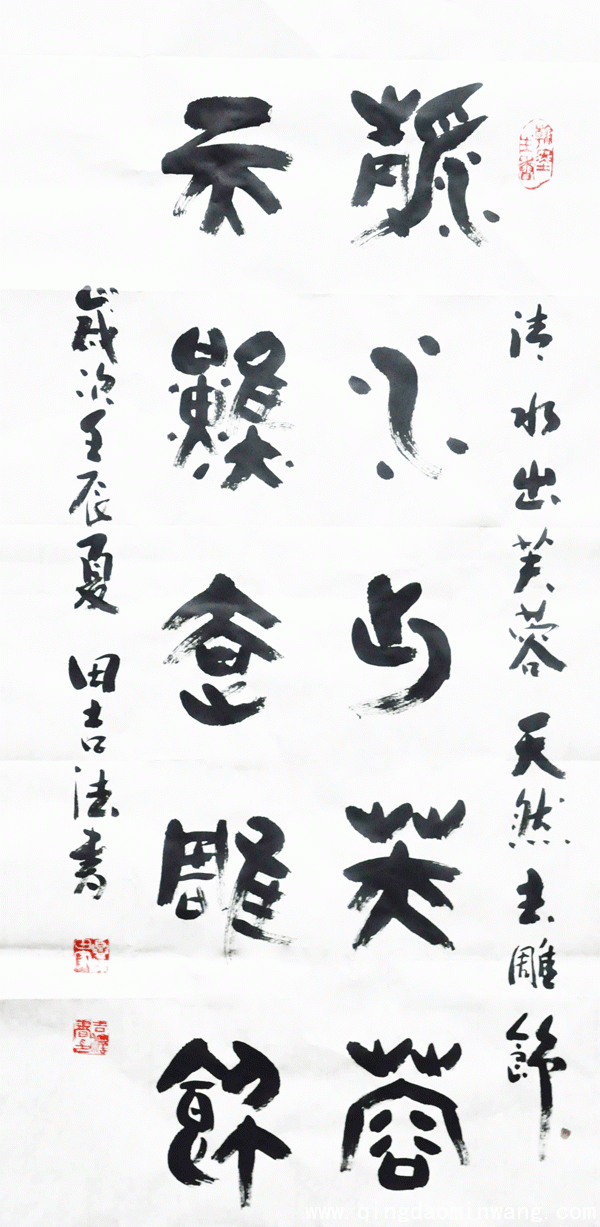 清水出芙蓉 天然去雕飾
清水出芙蓉
天然去雕飾
歲次壬辰夏 田吉法書
www.qingdaominwang.com